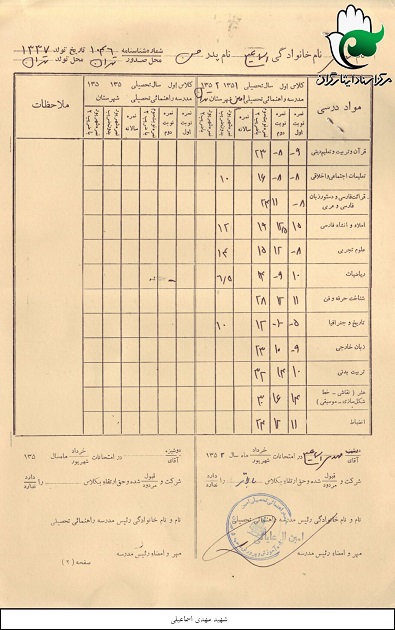 مرکز اسناد ایثارگران
نام خانوادگی نام پدر حسن شماره شناسنامه ۱۰۳۰۶ تاریخ تولد ۱۳۳۷
محل صدور تهران محل تولد تهران
مواد درسی
کلاس اول سال تحصیلی ۱۳۵۱ ۱۳۵۲
مدرسه راهنمائی تحصیلی شهرستان
نمره نوبت اول
نمره نوبت دوم
نمره سالانه
کلاس اول سال تحصیلی ۱۳۵ ۱۳۵
مدرسه راهنمائی تحصیلی شهرستان
نمره نوبت اول
نمره نوبت دوم
نمره سالانه
ملاحظات
قرآن و تربیت و تعلیم دینی ۹- ۸- ۲۳
تعلیمات اجتماعی و اخلاقی ۸- ۸- ۱۶ ۱۰
قرائت فارسی و دستور زبان
فارسی و عربی ۸- ۱۱
املاء و انشاء فارسی ۱۵ ۱۹ ۱۲
علوم تجربی ۸- ۱۲ ۱۵ ۱۴
ریاضیات ۱۰ ۹- ۱۴ ۶/۵
شناخت حرفه و فن ۱۱ ۱۲ ۲۸
تاریخ و جغرافیا ۵- ۱۰- ۱۲ ۱۰
زبان خارجی ۹- ۱۰ ۲۳
تربیت بدنی ۱۰ ۱۴ ۳۲
هنر (نقاشی - خط
شکل‌سازی - موسیقی) ۱۴ ۱۶ ۳
انضباط ۱۱ ۱۲ ۲۴
دوشیزه
آقای در امتحانات خرداد شهریور ماه سال ۱۳۵۲
شرکت و قبول مردود شده و حق ارتقاء بکلاس بالاتر را دارد ندارد
نام و نام خانوادگی رئیس مدرسه راهنمائی تحصیلی
مهر و امضاء رئیس مدرسه
دوشیزه
آقای در امتحانات خرداد شهریور ماه سال ۱۳۵
شرکت و قبول مردود شده و حق ارتقاء بکلاس را دارد ندارد
نام و نام خانوادگی رئیس مدرسه راهنمائی تحصیلی
مهر و امضاء رئیس مدرسه
صفحه (۲)
شهید مهدی اسماعیلی